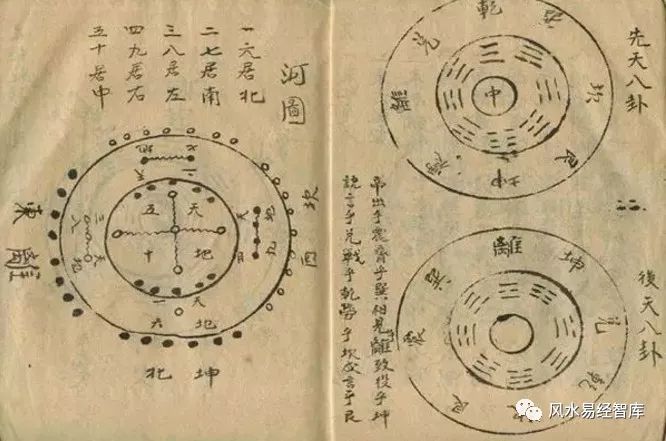 先天八卦
乾
兌
離
坎
艮
坤
中
後天八卦
離
坤
兌
乾
艮
震
巽
帝出乎震齊乎巽相見離致役乎坤
說言乎兌戰乎乾勞乎坎成言乎艮
河圖
一六居北
二七居南
三八居左
四九居右
五十居中
坎
西
東
離
天
五
地
十
天
一
地
六
北
坤
风水易经智库